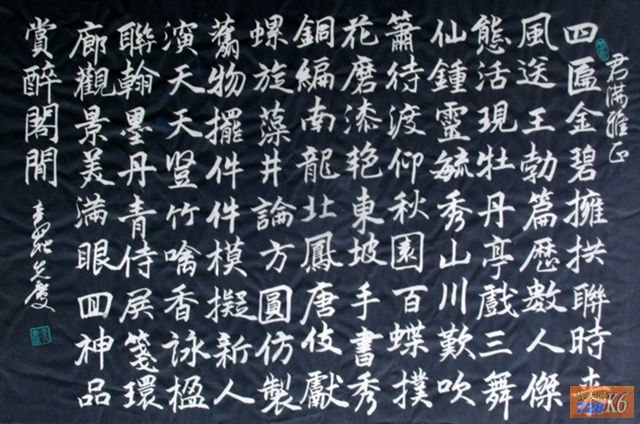 君滿雅正
四匾金碧擁拱聯時來
風送王勃篇歷數人傑
態活現牡丹亭戲三舞
仙鍾靈毓秀山川歎吹
簫待渡仰秋園百蝶撲
花磨漆艳東坡手書秀
銅編南龍北鳳唐伎獻
螺旋藻井論方圓仿製
物擺件件模擬新人
演天天豎竹噙香詠楹
聯翰墨丹青侍屏箋環
廊觀景美滿眼四神品
賞醉閣閒